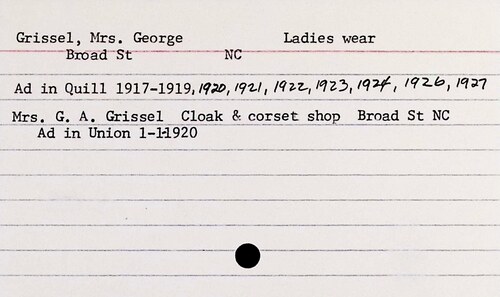 Grissel, Mrs. George Ladies wear
Broad St NC
Ad in Quill 1917-1919, 1920, 1921, 1922, 1923, 1924, 1926, 1927
Mrs. G. A. Grissel Cloak & corset shop Broad St NC
Ad in Union 1-1-1920